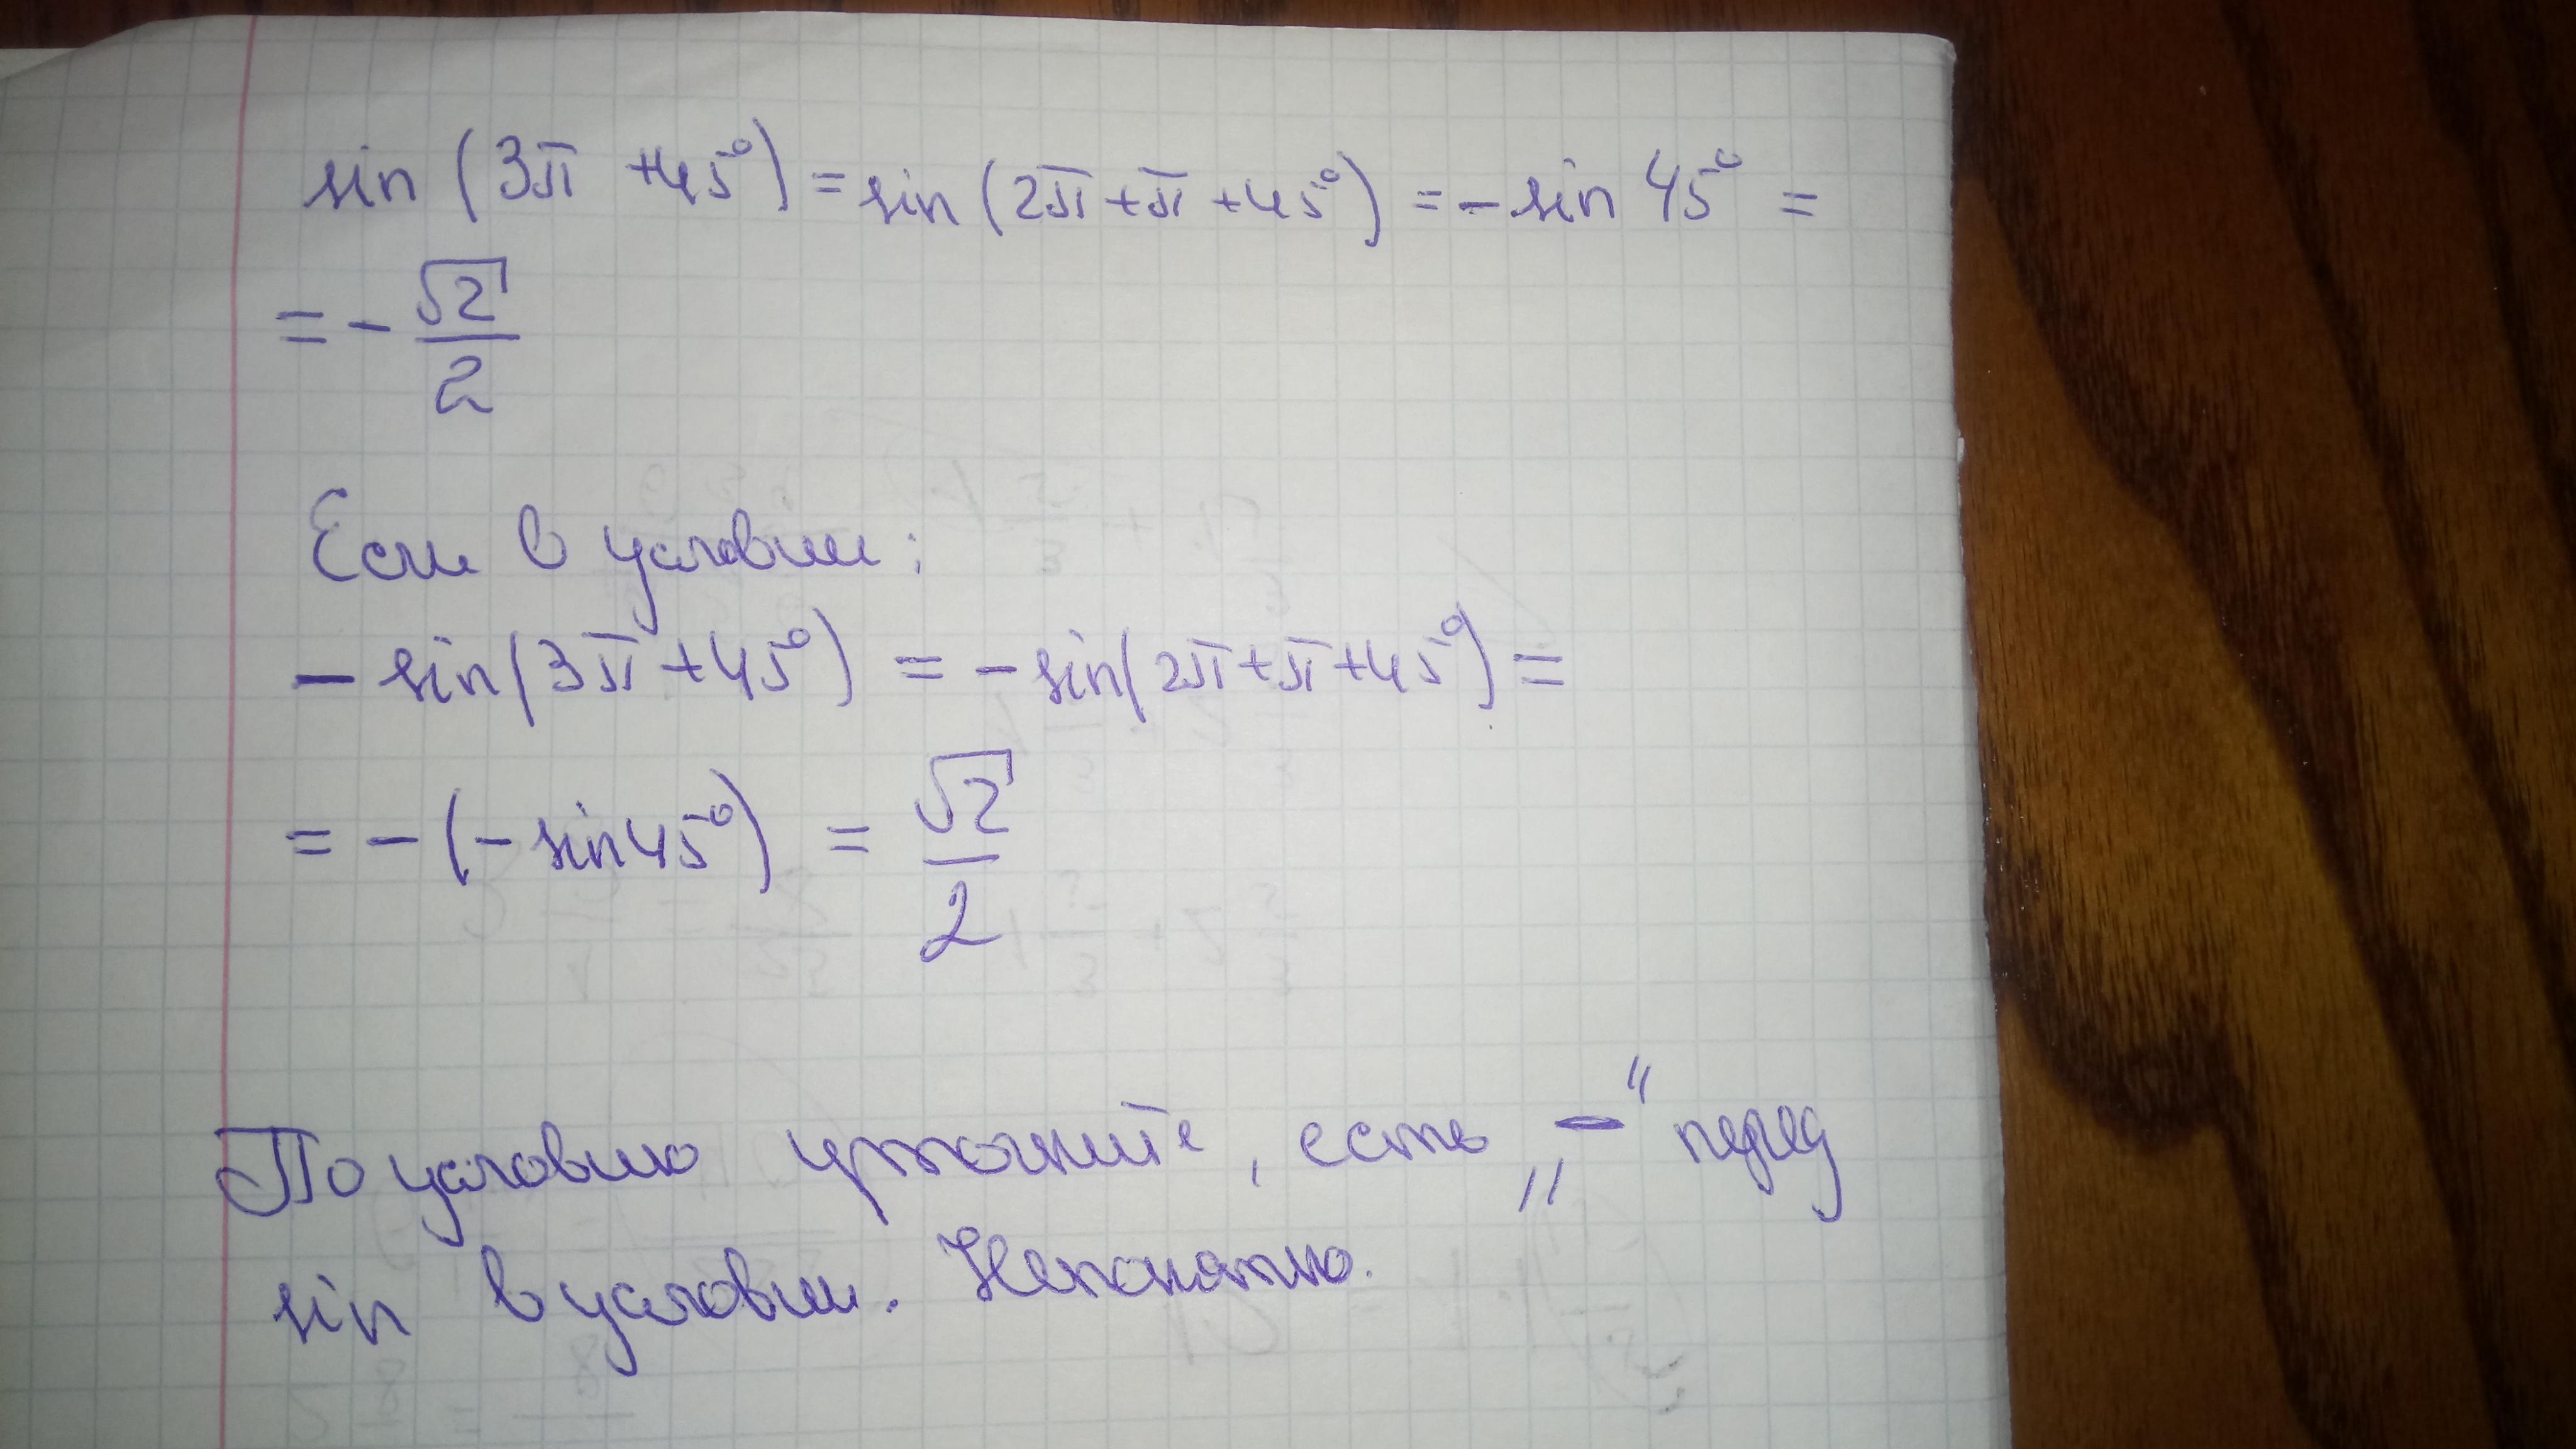 sin (3π + 45°) = sin (2π + π + 45°) = - sin 45° =
= - √2/2
Если в условии:
- sin (3π + 45°) = - sin (2π + π + 45°) =
= - (- sin 45°) = √2/2
По условию уточните, есть „-“ перед
sin в условии. Непонятно.